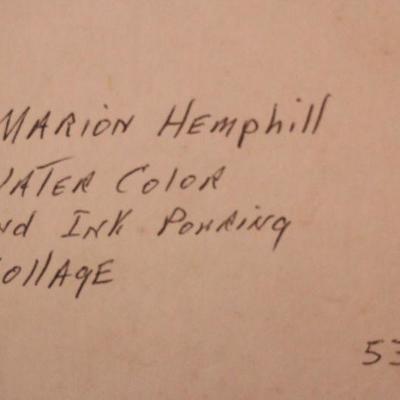 Marion Hemphill
Water Color
and Ink Pouring
Collage
53